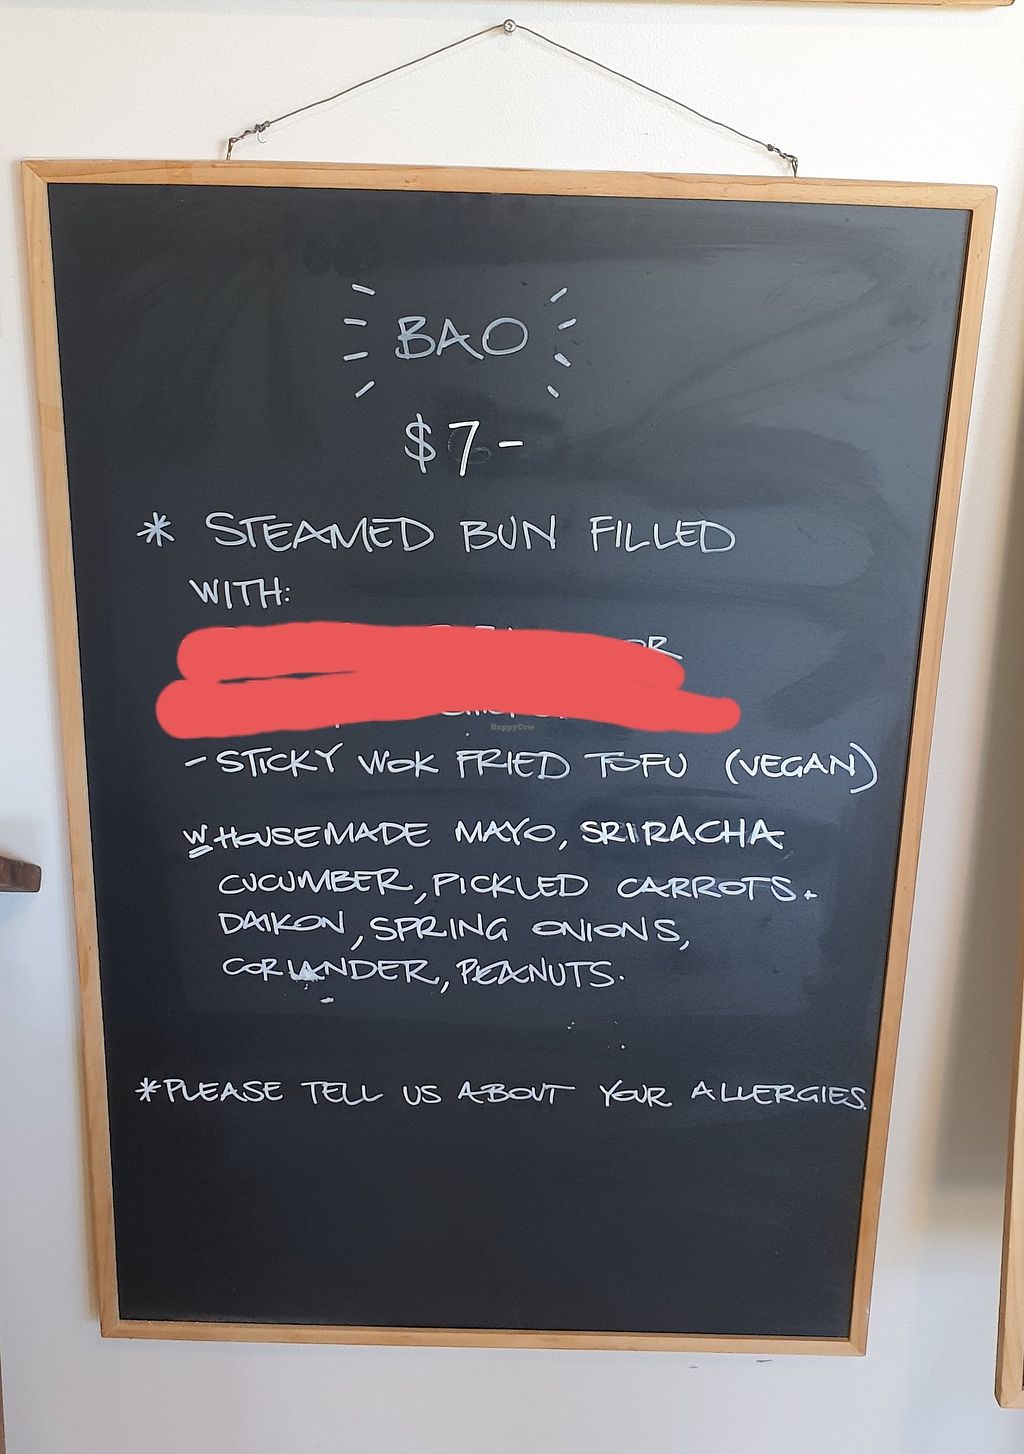 BAO
$7-
* STEAMED BUN FILLED
WITH:
OR
HappyCow
- STICKY WOK FRIED TOFU (VEGAN)
W HOUSEMADE MAYO, SRIRACHA
CUCUMBER, PICKLED CARROTS +
DAIKON, SPRING ONIONS,
CORIANDER, PEANUTS.
*PLEASE TELL US ABOUT YOUR ALLERGIES.